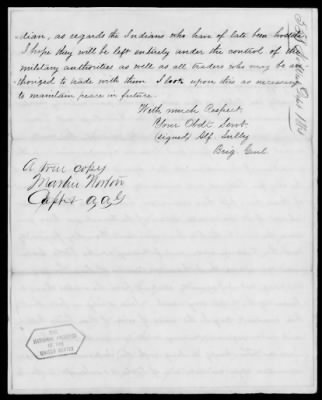 dian, as regards the Indians who have of late been hostile
I hope they will be left entirely under the control of the
military authorities as well as all traders who may be au
thorized to trade with them I look upon this as necessary
to maintain peace in future.
With much Respect
Your Obdt. Servt
(signed) Alf. Sully
Brig. Genl
A true copy
Capt
A A G
THE
NATIONAL ARCHIVES
OF THE
UNITED STATES